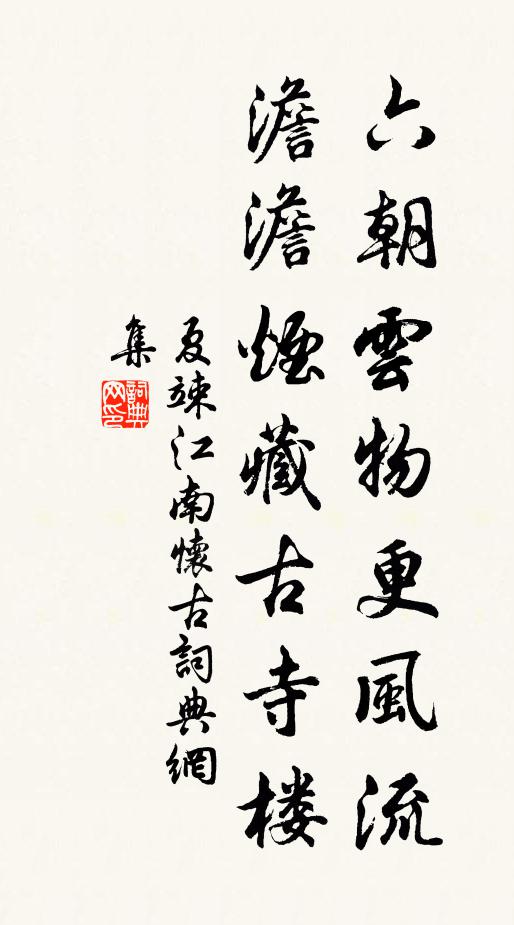 六朝雲物更風流
澹澹煙藏古寺楼
夏竦江南懷古詞典網
集
詞典
网印